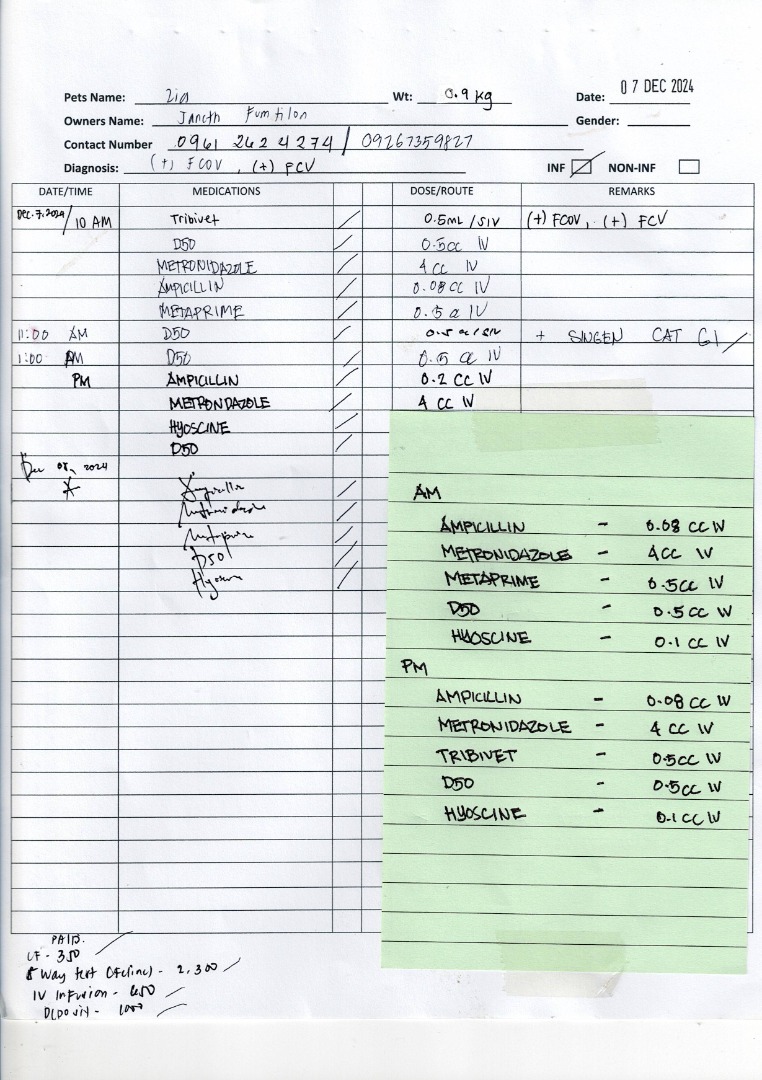 07 DEC 2024
Pets Name: Zia Wt: 0.9 kg Date:
Owners Name: Janeth Fumtilon Gender:
Contact Number 0961 262 4274 / 09267359827
Diagnosis: (+) FCOV, (+) FCV INF NON-INF
DATE/TIME MEDICATIONS DOSE/ROUTE REMARKS
Dec. 7, 2024 / 10 AM Tribivet / 0.5mL / SIV (+) FCOV, (+) FCV
D50 / 0.5cc IV
METRONIDAZOLE / 4 cc IV
AMPICILLIN / 0.08 CC IV
METAPRIME / 0.5 cc IV
11:00 AM D50 / 0.5 cc / SIV + SINGEN CAT G1 /
1:00 PM D50 / 0.5 cc IV
PM AMPICILLIN / 0.2 CC IV
METRONDAZOLE / 4 CC IV
HYOSCINE /
D50 /
Dec 08, 2024
Ampicillin /
Metronidazole /
Metaprime /
D50 /
Hyoscine /
AM
AMPICILLIN - 0.08 CC IV
METRONIDAZOLE - 4CC IV
METAPRIME - 0.5CC IV
D50 - 0.5CC IV
HYOSCINE - 0.1 CC IV
PM
AMPICILLIN - 0.08 CC IV
METRONIDAZOLE - 4 CC IV
TRIBIVET - 0.5CC IV
D50 - 0.5CC IV
HYOSCINE - 0.1 CC IV
PAID.
CF - 350 /
5 Way test (feline) - 2,300 /
IV Infusion - 650 /
Deposit - 1000 /